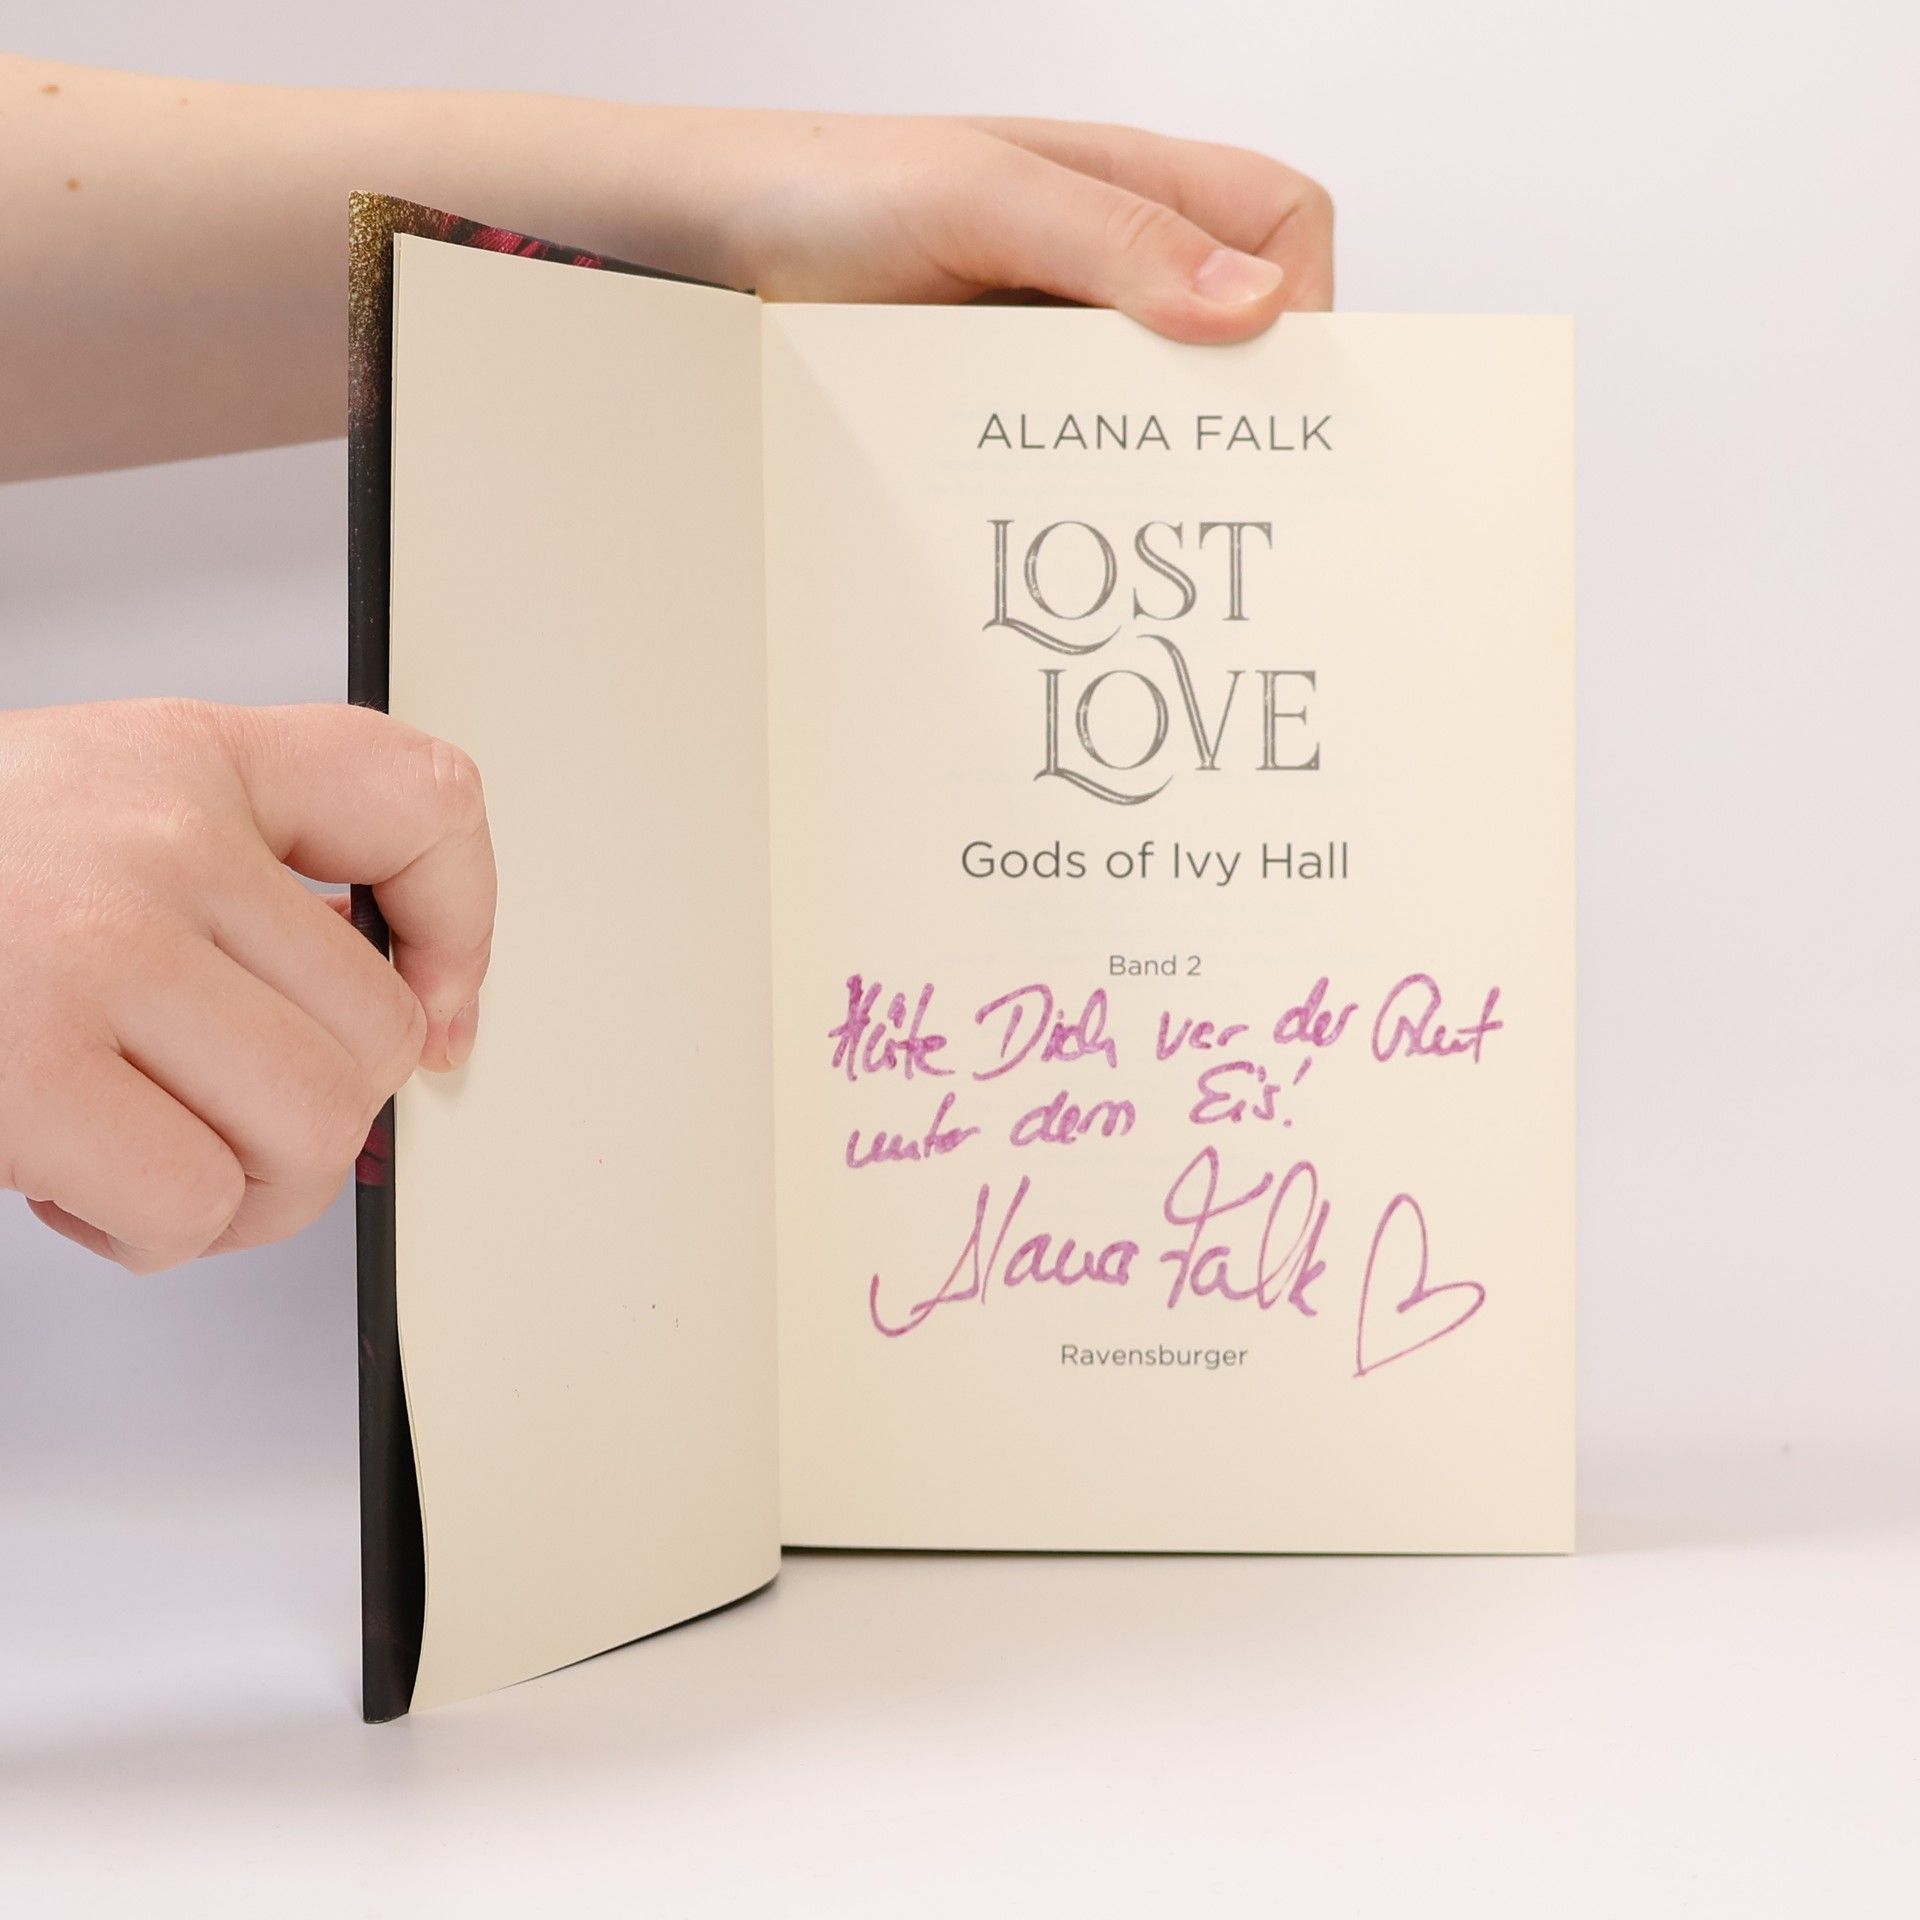 ALANA FALK
LOST
LOVE
Gods of Ivy Hall
Band 2
Hüte Dich vor der Glut
unter dem Eis!
Alana Falk
Ravensburger